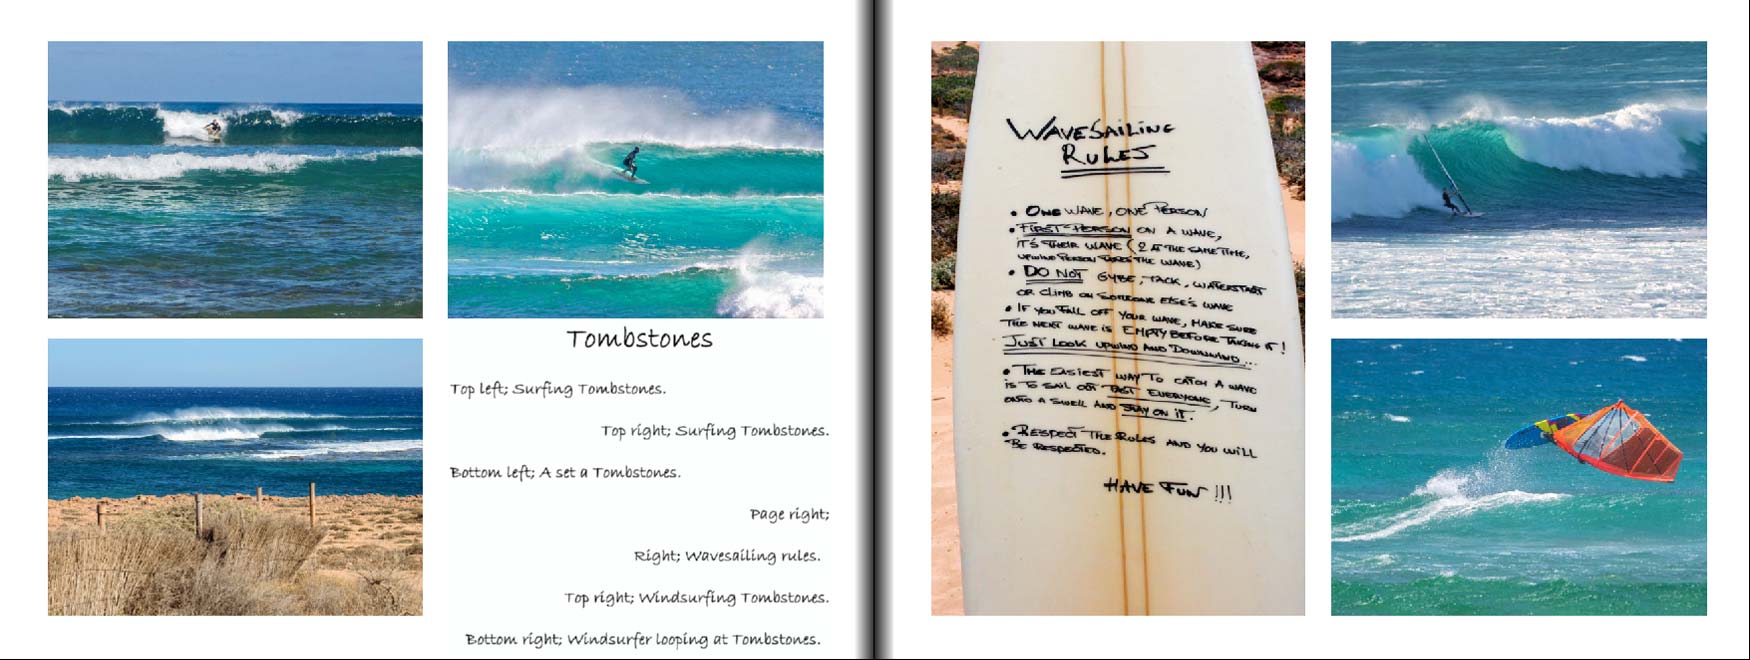 Tombstones
Top left; Surfing Tombstones.
Top right; Surfing Tombstones.
Bottom left; A set a Tombstones.
Page right;
Right; Wavesailing rules.
Top right; Windsurfing Tombstones.
Bottom right; Windsurfer looping at Tombstones.
WAVESAILING
RULES
• ONE WAVE, ONE PERSON
• FIRST PERSON ON A WAVE,
IT'S THEIR WAVE (2 AT THE SAME TIME,
UPWIND PERSON TAKES THE WAVE)
• DO NOT GYBE, TACK, WATERSTART
OR CLIMB ON SOMEONE ELSE'S WAVE
• IF YOU FALL OFF YOUR WAVE, MAKE SURE
THE NEXT WAVE IS EMPTY BEFORE TAKING IT!
JUST LOOK UPWIND AND DOWNWIND...
• THE EASIEST WAY TO CATCH A WAVE
IS TO SAIL OUT PAST EVERYONE, TURN
ONTO A SWELL AND STAY ON IT.
• RESPECT THE RULES AND YOU WILL
BE RESPECTED.
HAVE FUN !!!